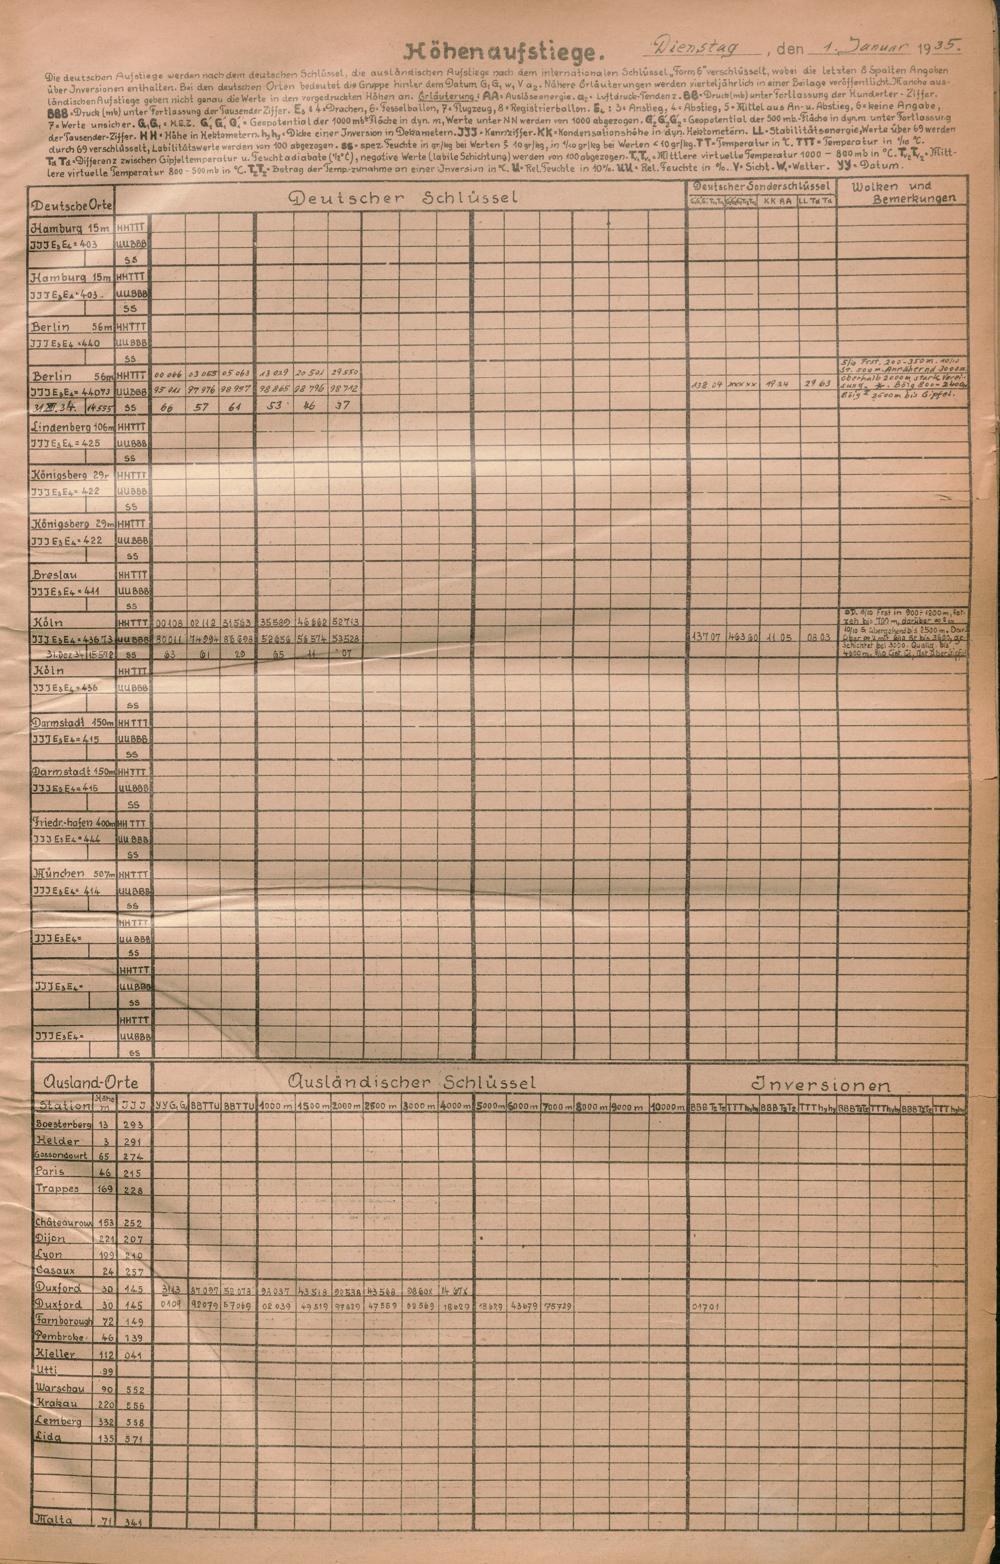 Höhenaufstiege. Dienstag, den 1. Januar 1935.
Die deutschen Aufstiege werden nach dem deutschen Schlüssel, die ausländischen Aufstiege nach dem internationalen Schlüssel „Form 6" verschlüsselt, wobei die letzten 8 Spalten Angaben
über Inversionen enthalten. Bei den deutschen Orten bedeutet die Gruppe hinter dem Datum G₁G₁ w₁ V a₂. Nähere Erläuterungen werden vierteljährlich in einer Beilage veröffentlicht. Manche aus-
ländischen Aufstiege geben nicht genau die Werte in den vorgedruckten Höhen an. Erläuterung: AA = Auslöseenergie. a₂ = Luftdruck-Tendenz. BB = Druck (mb) unter Fortlassung der Hunderter-Ziffer.
BBB = Druck (mb) unter Fortlassung der Tausender Ziffer. E₃ = 4 = Drachen, 6 = Fesselballon, 7 = Flugzeug, 8 = Registrierballon. E₄ : 3 = Anstieg, 4 = Abstieg, 5 = Mittel aus An- u. Abstieg, 6 = keine Angabe,
7 = Werte unsicher. G₁G₁ = M.E.Z.
der Tausender-Ziffer. HH = Höhe in Hektometern. hyhy = Dicke einer Inversion in Dekametern. JJJ = Kennziffer. KK = Kondensationshöhe in dyn. Hektometern. LL = Stabilitätsenergie, Werte über 69 werden
durch 69 verschlüsselt, Labilitätswerte werden von 100 abgezogen. SS = spez. Feuchte in gr/kg
TT = Temperatur in °C. TTT = Temperatur in 1/10 °C.
Td Td = Differenz zwischen Gipfeltemperatur u. Feuchtadiabate (1/2°C), negative Werte (labile Schichtung) werden von 100 abgezogen.
Mittlere virtuelle Temperatur 1000 – 800 mb in °C.
lere virtuelle Temperatur 800 - 500 mb in °C. TzTz = Betrag der Temp.-zunahme an einer Inversion in °C. U = Rel. Feuchte in 10%. UU = Rel. Feuchte in %. V = Sicht. W₁ = Wetter. YY = Datum.
Deutsche Orte Deutscher Schlüssel Deutscher Sonderschlüssel Wolken und Bemerkungen
KK AA LL Td Td
Hamburg 15m HHTTT
JJJ E₃E₄ = 403 UUBBB
SS
Hamburg 15m HHTTT
JJJ E₃E₄ = 403 UUBBB
SS
Berlin 56m HHTTT
JJJ E₃E₄ = 440 UUBBB
SS
Berlin 56m HHTTT 00 066 03 065 05 063 13 029 20 501 29 550
JJJ E₃E₄ = 44073 UUBBB 95 011 97 976 98 957 98 865 98 796 98 712 138 04 xxxxx 19 24 29 63
31 XII. 34. 14595 SS 66 57 61 53 46 37
5/10 Frst. 200-350m. 10/10
St. 500 m. Annähernd 3000m
Böig² 2600m bis Gipfel.
Lindenberg 106m HHTTT
JJJ E₃E₄ = 425 UUBBB
SS
Königsberg 29m HHTTT
JJJ E₃E₄ = 422 UUBBB
SS
Königsberg 29m HHTTT
JJJ E₃E₄ = 422 UUBBB
SS
Breslau HHTTT
JJJ E₃E₄ = 411 UUBBB
SS
Köln HHTTT 00108 02112 31563 35589 46662 52713
JJJ E₃E₄ = 43673 UUBBB 80011 74994 86698 52656 56574 53528 13707 46360 11 05 08 03
31. Dez 34 15512 SS 63 61 29 65 11 07
Köln HHTTT
JJJ E₃E₄ = 436 UUBBB
SS
Darmstadt 150m HHTTT
JJJ E₃E₄ = 415 UUBBB
SS
Darmstadt 150m HHTTT
JJJ E₃E₄ = 415 UUBBB
SS
Friedr.-hafen 400m HHTTT
JJJ E₃E₄ = 444 UUBBB
SS
München 507m HHTTT
JJJ E₃E₄ = 414 UUBBB
SS
HHTTT
JJJ E₃E₄ = UUBBB
SS
HHTTT
JJJ E₃E₄ = UUBBB
SS
HHTTT
JJJ E₃E₄ = UUBBB
SS
Ausland-Orte Ausländischer Schlüssel Inversionen
Station Höhe m JJJ YYG₁G₁ BBTTU BBTTU 1000 m 1500 m 2000 m 2500 m 3000 m 4000 m 5000 m 6000 m 7000 m 8000 m 9000 m 10000 m BBBTzTz TTThyhy BBBTzTz TTThyhy BBBTzTz TTThyhy BBBTzTz TTThyhy
Soesterberg 13 293
Helder 3 291
Gossoncourt 65 274
Paris 46 215
Trappes 169 228
Châteauroux 153 252
Dijon 221 207
Lyon 199 210
Casaux 24 257
Duxford 30 145 3113 87097 52073 93037 43518 92538 43568 98608 14 678
Duxford 30 145 0109 92079 57069 02 039 49519 97829 47559 02569 18629 18629 43679 75729 01701
Farnborough 72 149
Pembroke 46 139
Kjeller 112 041
Utti 99
Warschau 90 552
Krakau 220 556
Lemberg 332 558
Lida 135 571
Malta 71 341